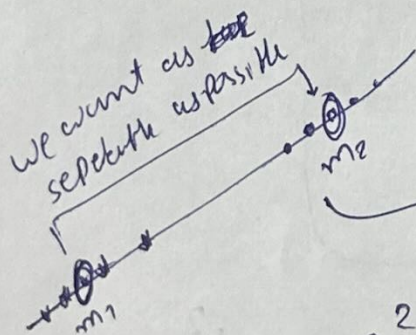 we want as
seperable as possible
m2
m1
2